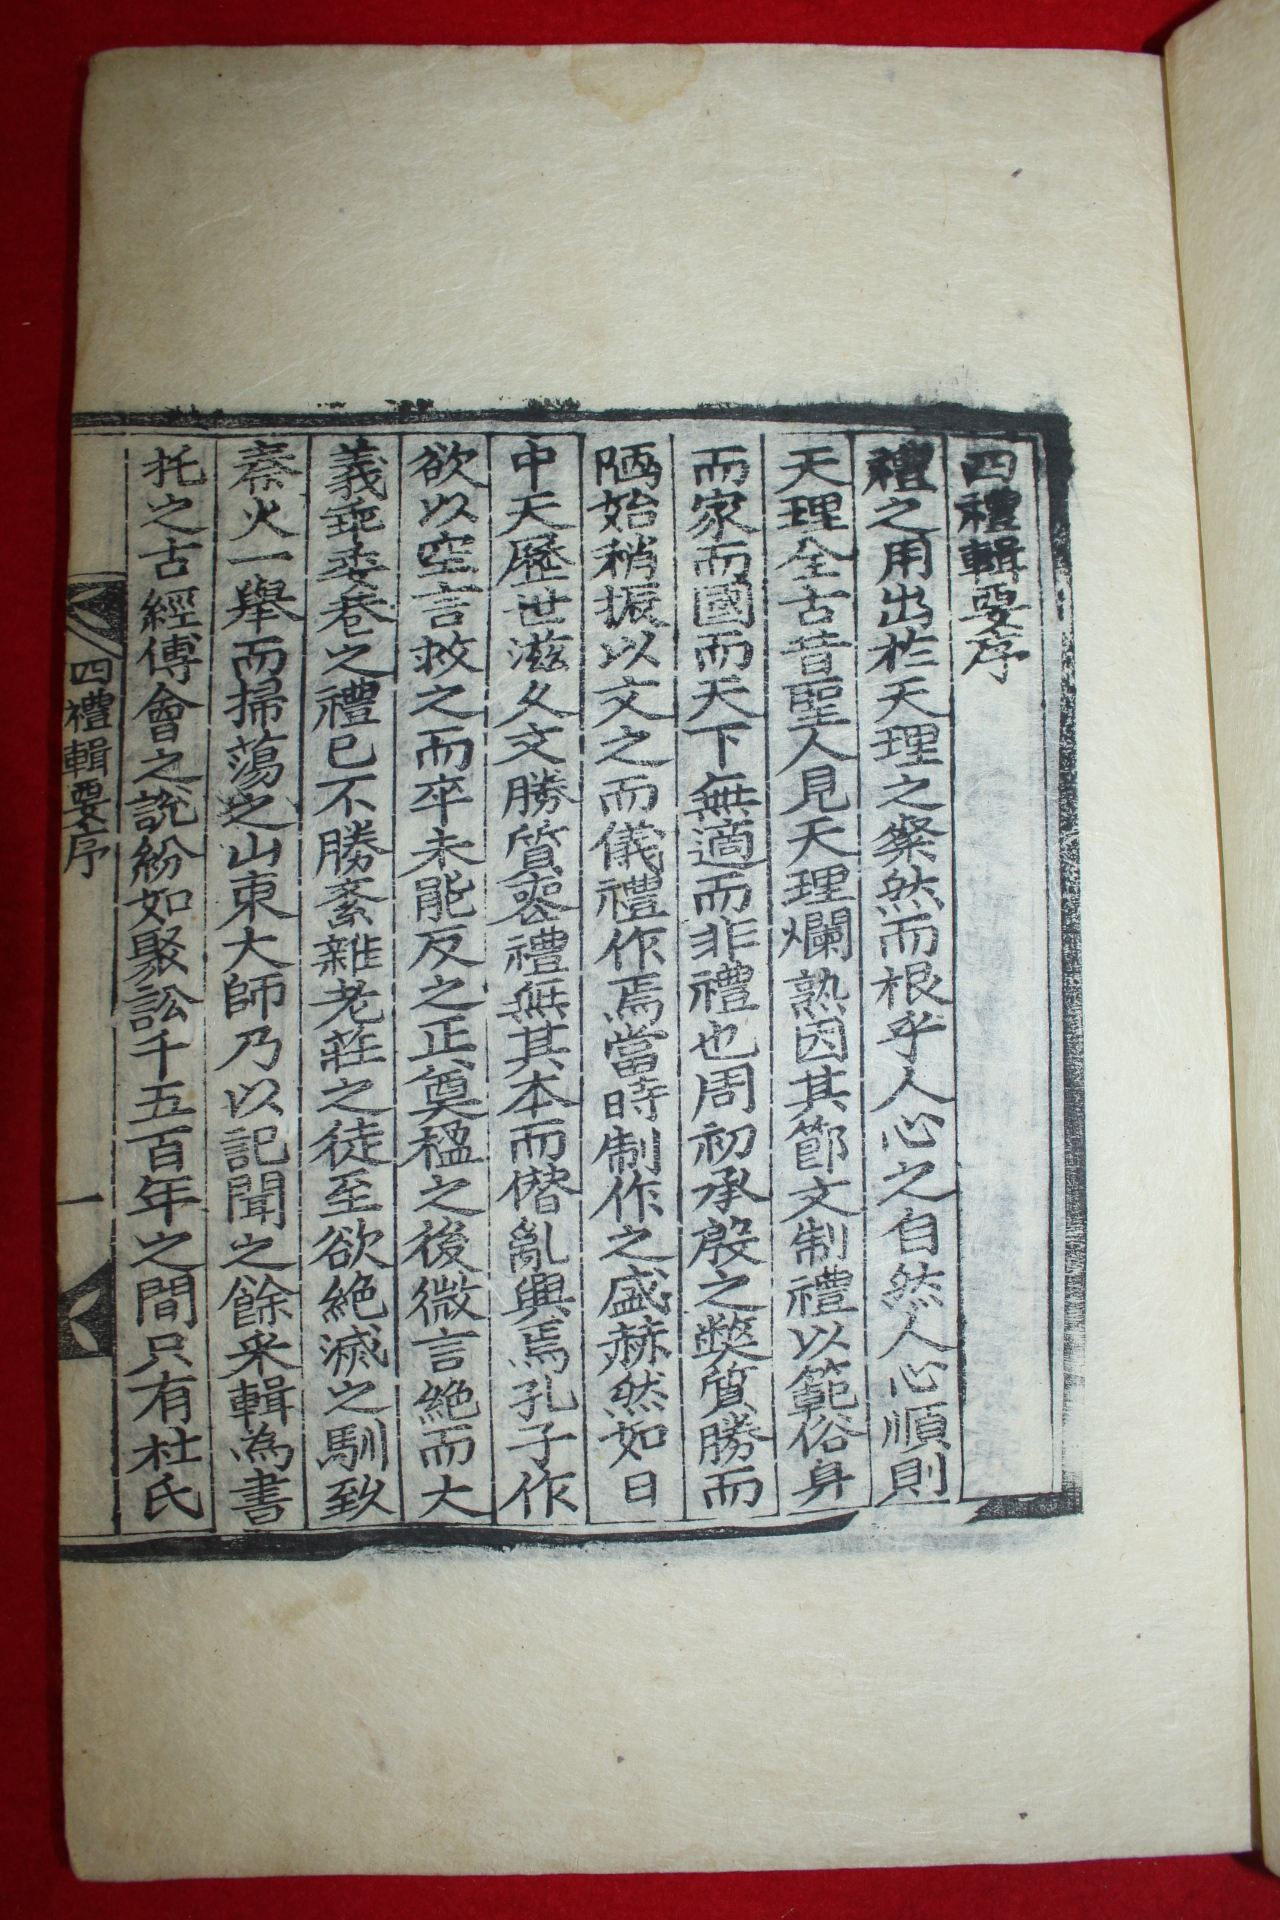 四禮輯要序
禮之用出於天理之粲然而根乎人心之自然人心順則
天理全古昔聖人見天理爛熟因其節文制禮以範俗身
而家而國而天下無適而非禮也周初承殷之弊質勝而
陋始稍振以文之而儀禮作焉當時制作之盛赫然如日
中天歷世滋久文勝質衰禮無其本而僭亂興焉孔子作
欲以空言救之而卒未能反之正奠楹之後微言絶而大
義乖委巷之禮已不勝紊雜老莊之徒至欲絶滅之馴致
秦火一擧而掃蕩之山東大師乃以記聞之餘采輯為書
托之古經傅會之說紛如聚訟千五百年之間只有杜氏
四禮輯要序
一